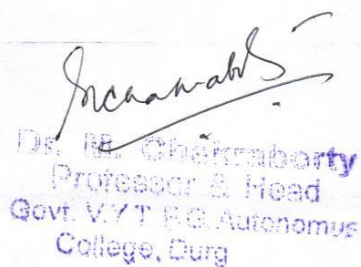 Dr. M. Chakraborty
Professor & Head
Govt. V.Y.T P.G. Autonomus
College, Durg